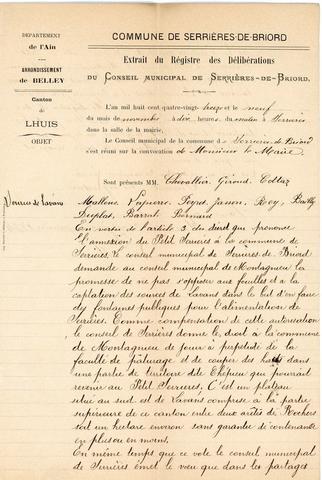 DÉPARTEMENT
de l'Ain
ARRONDISSEMENT
de BELLEY
Canton
de
LHUIS
OBJET
COMMUNE DE SERRIÈRES-DE-BRIORD
Extrait du Registre des Délibérations
DU CONSEIL MUNICIPAL DE SERRIÈRES-DE-BRIORD.
L'an mil huit cent quatre-vingt-treize et le neuf
du mois de novembre à dix heures du matin à Serrières
dans la salle de la mairie,
Le Conseil municipal de la commune de Serrières de Briord
s'est réuni sur la convocation de Monsieur le Maire
Sont présents MM. Chevallier, Giroud,
Sources de Lavans
Jasson, Roy, Bailly
Barral Bernard
En vertu de l'article 3 du qui prononce
l'annexion du Petit Serrières à la commune de
Serrières, le conseil municipal de Serrières de Briord
demande au conseil municipal de Montagneu la
promesse de ne pas s'opposer aux fouilles et à la
captation des sources de Lavans dans le but d'en faire
des fontaines publiques pour l'alimentation de
Serrières. Comme compensation de cette autorisation
le conseil de Serrières donne le droit à la commune
de Montagneu de jouir à perpétuité de la
faculté de pâturage et de couper des dans
une partie de territoire dite qui pourrait
revenir au Petit Serrières, C'est un plateau
situé au sud est de Lavans compris à la partie
supérieure de ce canton entre deux arêtes de Rochers
soit un hectare environ sans garantie de contenance
en plus ou en moins.
En même temps que ce vote le conseil municipal
de Serrières émet le vœu que dans les partages